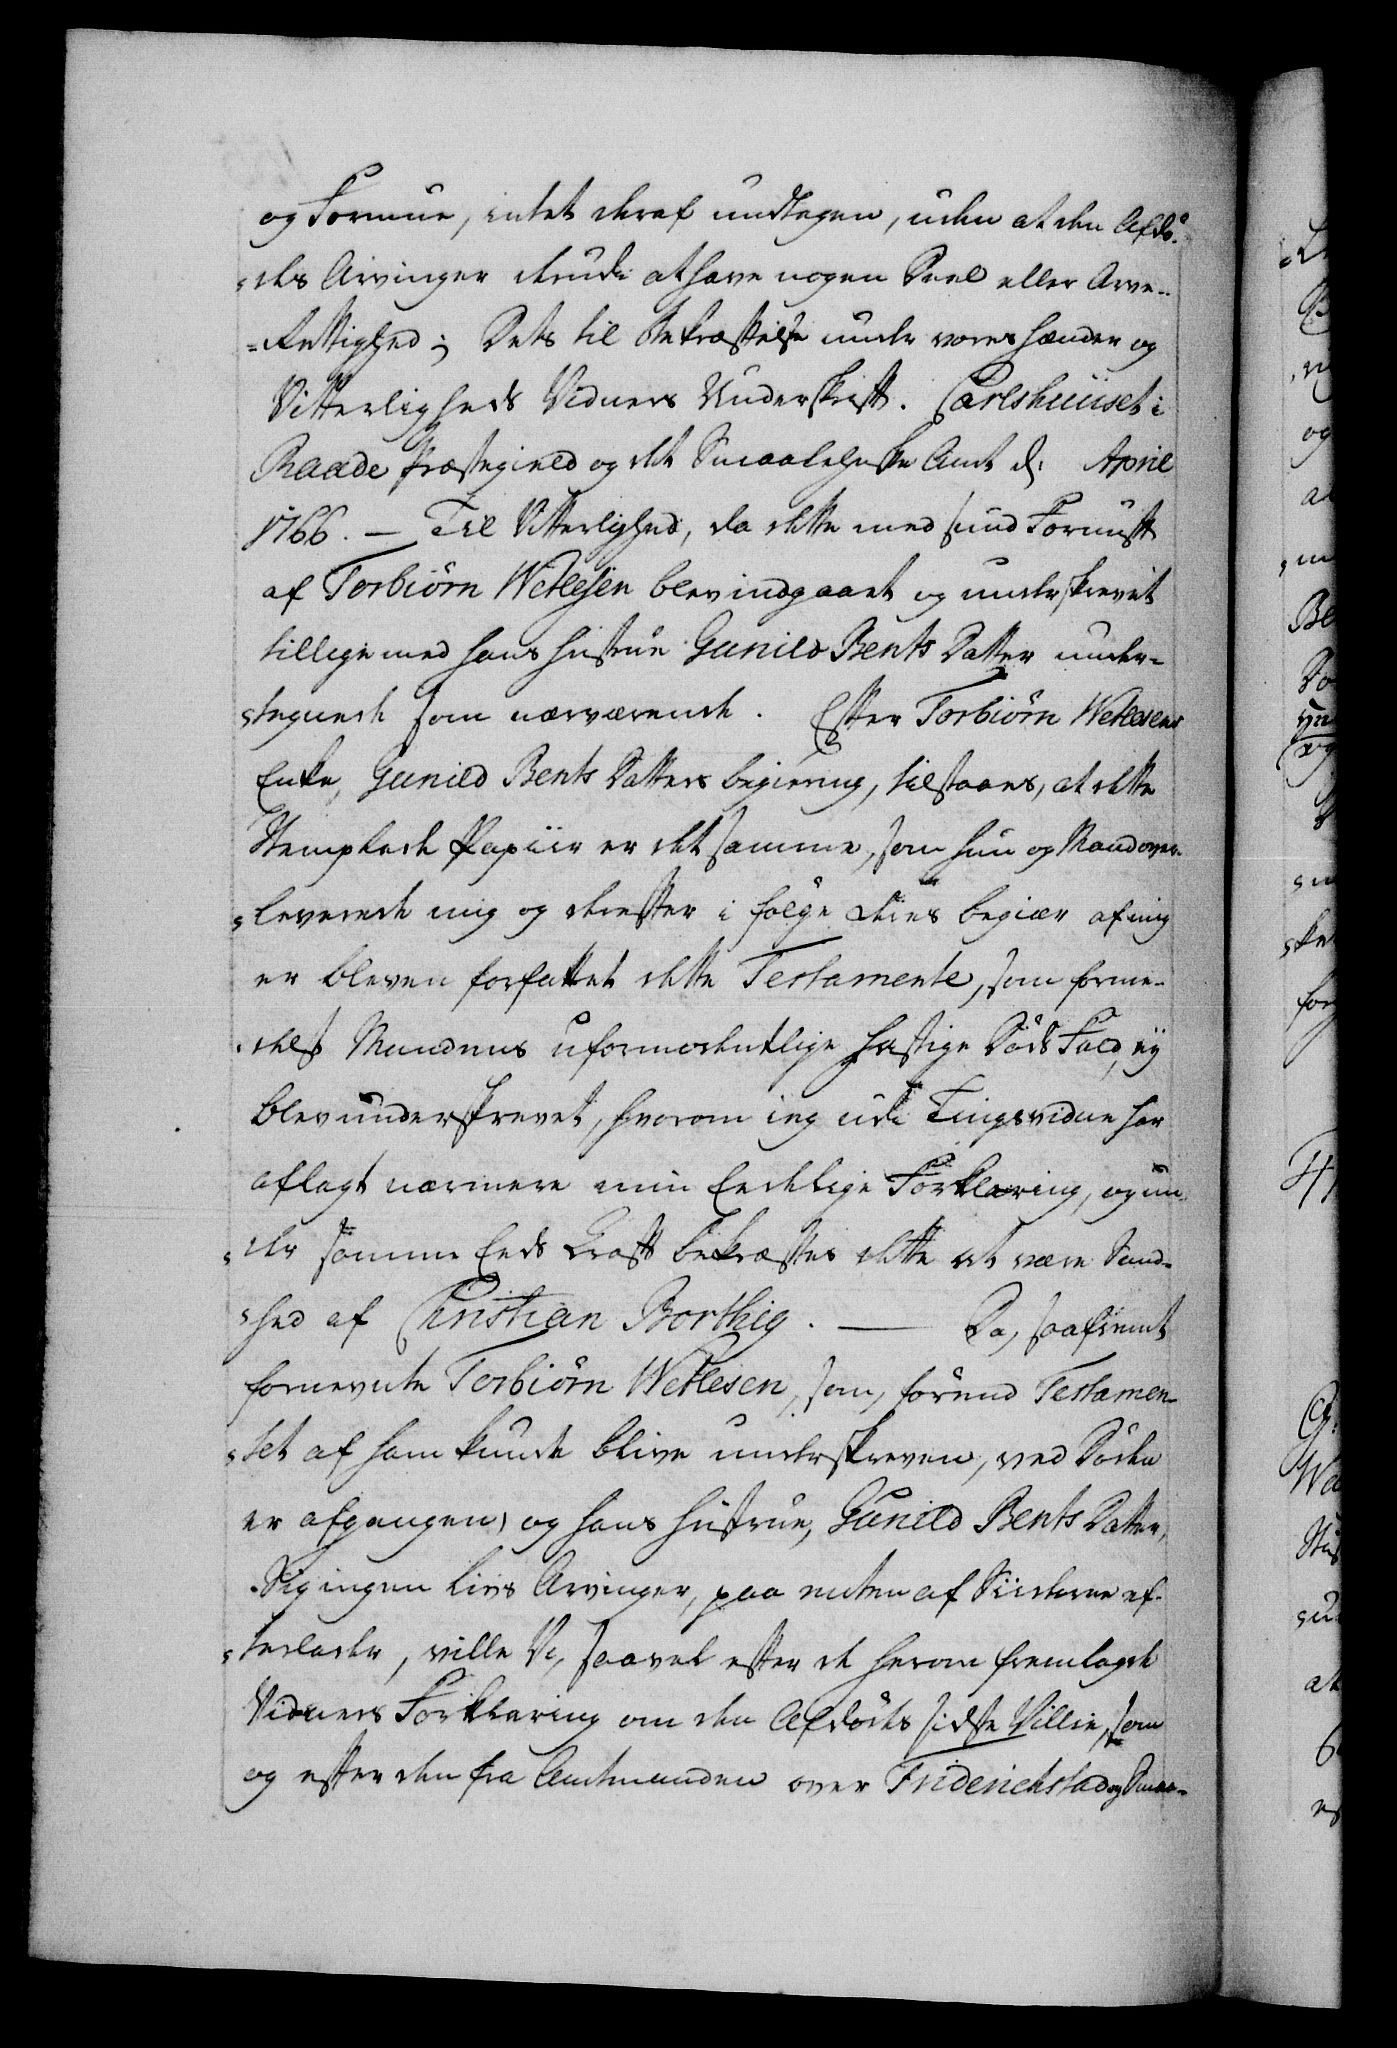 og Formue, intet deraf undtagen, uden at den Afdö-
=des Arvinger derudi at have nogen Deel eller Arve-
=Rettighed; Dets til Bekræftelse under vores Hænder og
Vitterligheds Vidners Underskrift. Carlshuuset i
Raade Præstegield og det Smaalehnske Amt d: April
1766. — Til Vitterlighed, da dette med sund Fornuft
af Torbiörn Wetlesen blev indgaaet og underskrevet
tillige med hans Hustrue Gunild Bents Datter under-
=tegnede som nærværende. Efter Torbiörn Wetlesens
Enke, Gunild Bents Datters begiering, tilstaaes, at dette
Stemplede Papiir er det samme, som hun og Mand over-
=leverede mig og derefter i fölge deres begiær af mig
er bleven forfattet dette Testamente, som forme-
=delst Mandens uformodentlige hastige Döds Fald, ey
blev underskrevet, hvorom ieg udi Tingsvidne har
aflagt nærmere min Eedelige Forklaring, og un-
=der samme Eeds Kraft bekræftes dette at være Sand-
=hed af Christian Borthig. — Da, saafremt
fornevnte Torbiörn Wetlesen, som, förend Testamen-
=tet af ham kunde blive underskreven, ved Döden
er afgangen, og hans Hustrue, Gunild Bents Datter,
Sig ingen Livs Arvinger, paa enten af Siiderne ef-
=terlader, ville Vi, saavel efter de herom fremlagde
Vidners Forklaring om den Afdödes sidste Villie, som
og efter den fra Amtmanden over Friderichstad og Smaa-